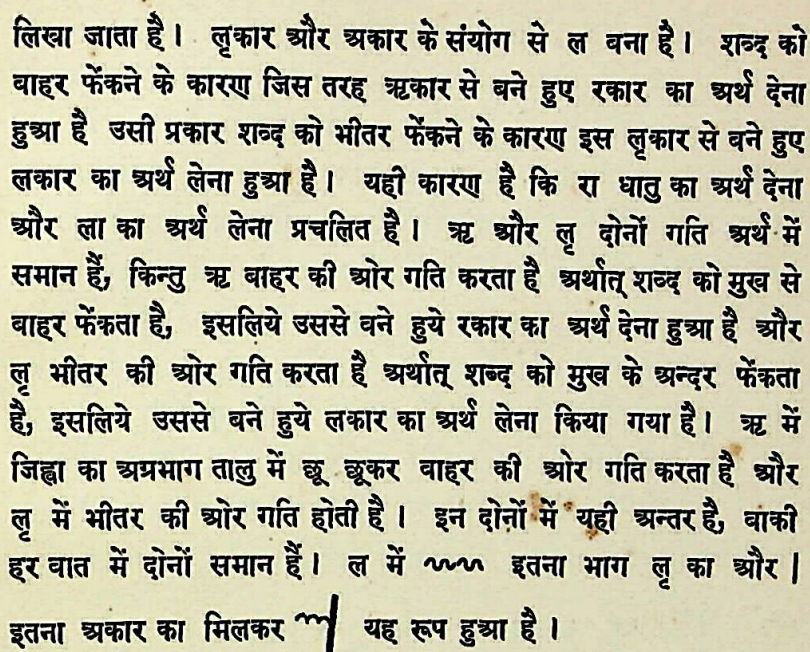 लिखा जाता है। लृकार और अकार के संयोग से ल बना है। शब्द को
बाहर फेंकने के कारण जिस तरह ऋकार से बने हुए रकार का अर्थ देना
हुआ है उसी प्रकार शब्द को भीतर फेंकने के कारण इस लृकार से बने हुए
लकार का अर्थ लेना हुआ है। यही कारण है कि रा धातु का अर्थ देना
और ला का अर्थ लेना प्रचलित है। ऋ और लृ दोनों गति अर्थ में
समान हैं, किन्तु ऋ बाहर की ओर गति करता है अर्थात् शब्द को मुख से
बाहर फेंकता है, इसलिये उससे बने हुये रकार का अर्थ देना हुआ है और
लृ भीतर की ओर गति करता है अर्थात् शब्द को मुख के अन्दर फेंकता
है, इसलिये उससे बने हुये लकार का अर्थ लेना किया गया है। ऋ में
जिह्वा का अग्रभाग तालु में छू छूकर बाहर की ओर गति करता है और
लृ में भीतर की ओर गति होती है। इन दोनों में यही अन्तर है, बाकी
हर बात में दोनों समान हैं। ल में इतना भाग लृ का और |
इतना अकार का मिलकर यह रूप हुआ है।